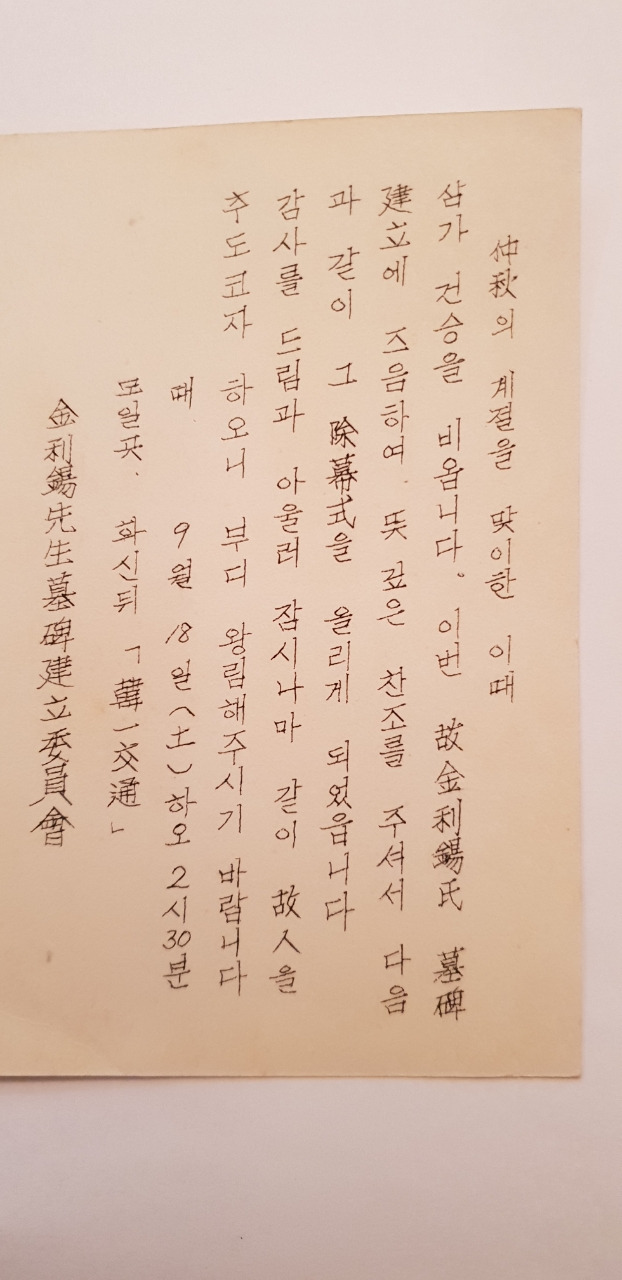 仲秋의 계절을 맞이한 이때
삼가 건승을 비옵니다. 이번 故金利錫氏 墓碑
建立에 즈음하여 뜻 깊은 찬조를 주셔서 다음
과 같이 그 除幕式을 올리게 되었읍니다
감사를 드림과 아울러 잠시나마 같이 故人을
추도코자 하오니 부디 왕림해주시기 바랍니다
때 9월 18일(土)하오 2시30분
모일곳. 화신뒤 「韓一交通」
金利錫先生墓碑建立委員會